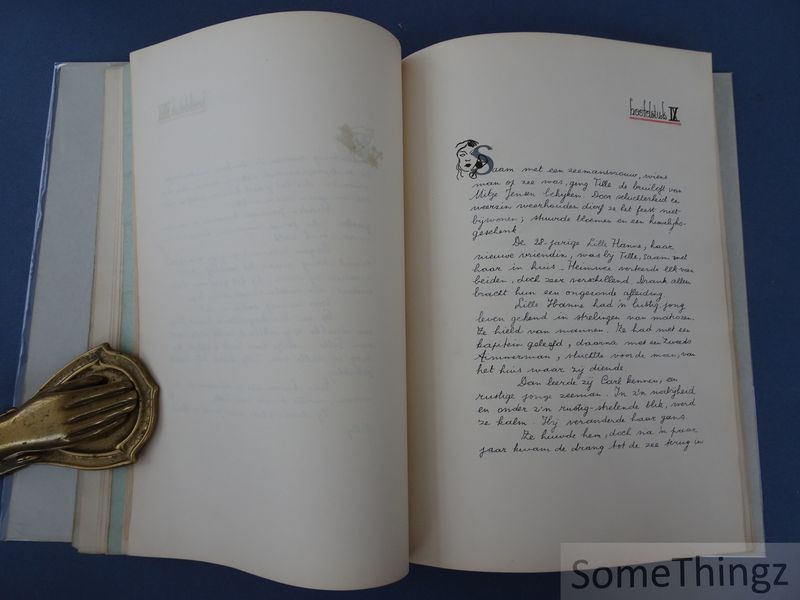 hoofdstuk IX
Saam met een zeemansvrouw, wiens
man op zee was, ging Tille de bruiloft van
Mitze Jensen kijken. Door schuchterheid en
weerzin weerhouden dierf ze het feest niet
bijwonen; stuurde bloemen en een huwelijks-
geschenk.
De 28-jarige Lille Hanne, haar
nieuwe vriendin, was bij Tille, saam met
haar in huis. Heimwee verteerde elk van
beiden, doch zeer verschillend. Drank alleen
bracht hun een ongezonde afleiding.
Lille Hanne had 'n lustig, jong
leven gekend in strelingen van matrozen.
Ze hield van mannen. Ze had met een
kapitein geleefd, daarna met een zweeds
timmerman, vluchtte voor de man, van
het huis waar zij diende.
Dan leerde zij Carl kennen, en
rustige jonge zeeman. In z'n nabijheid
en onder z'n rustig-strelende blik, werd
ze kalm. Hij veranderde haar gans.
Ze huwde hem, doch na 'n paar
jaar kwam de drang tot de zee terug in
SomeThingz